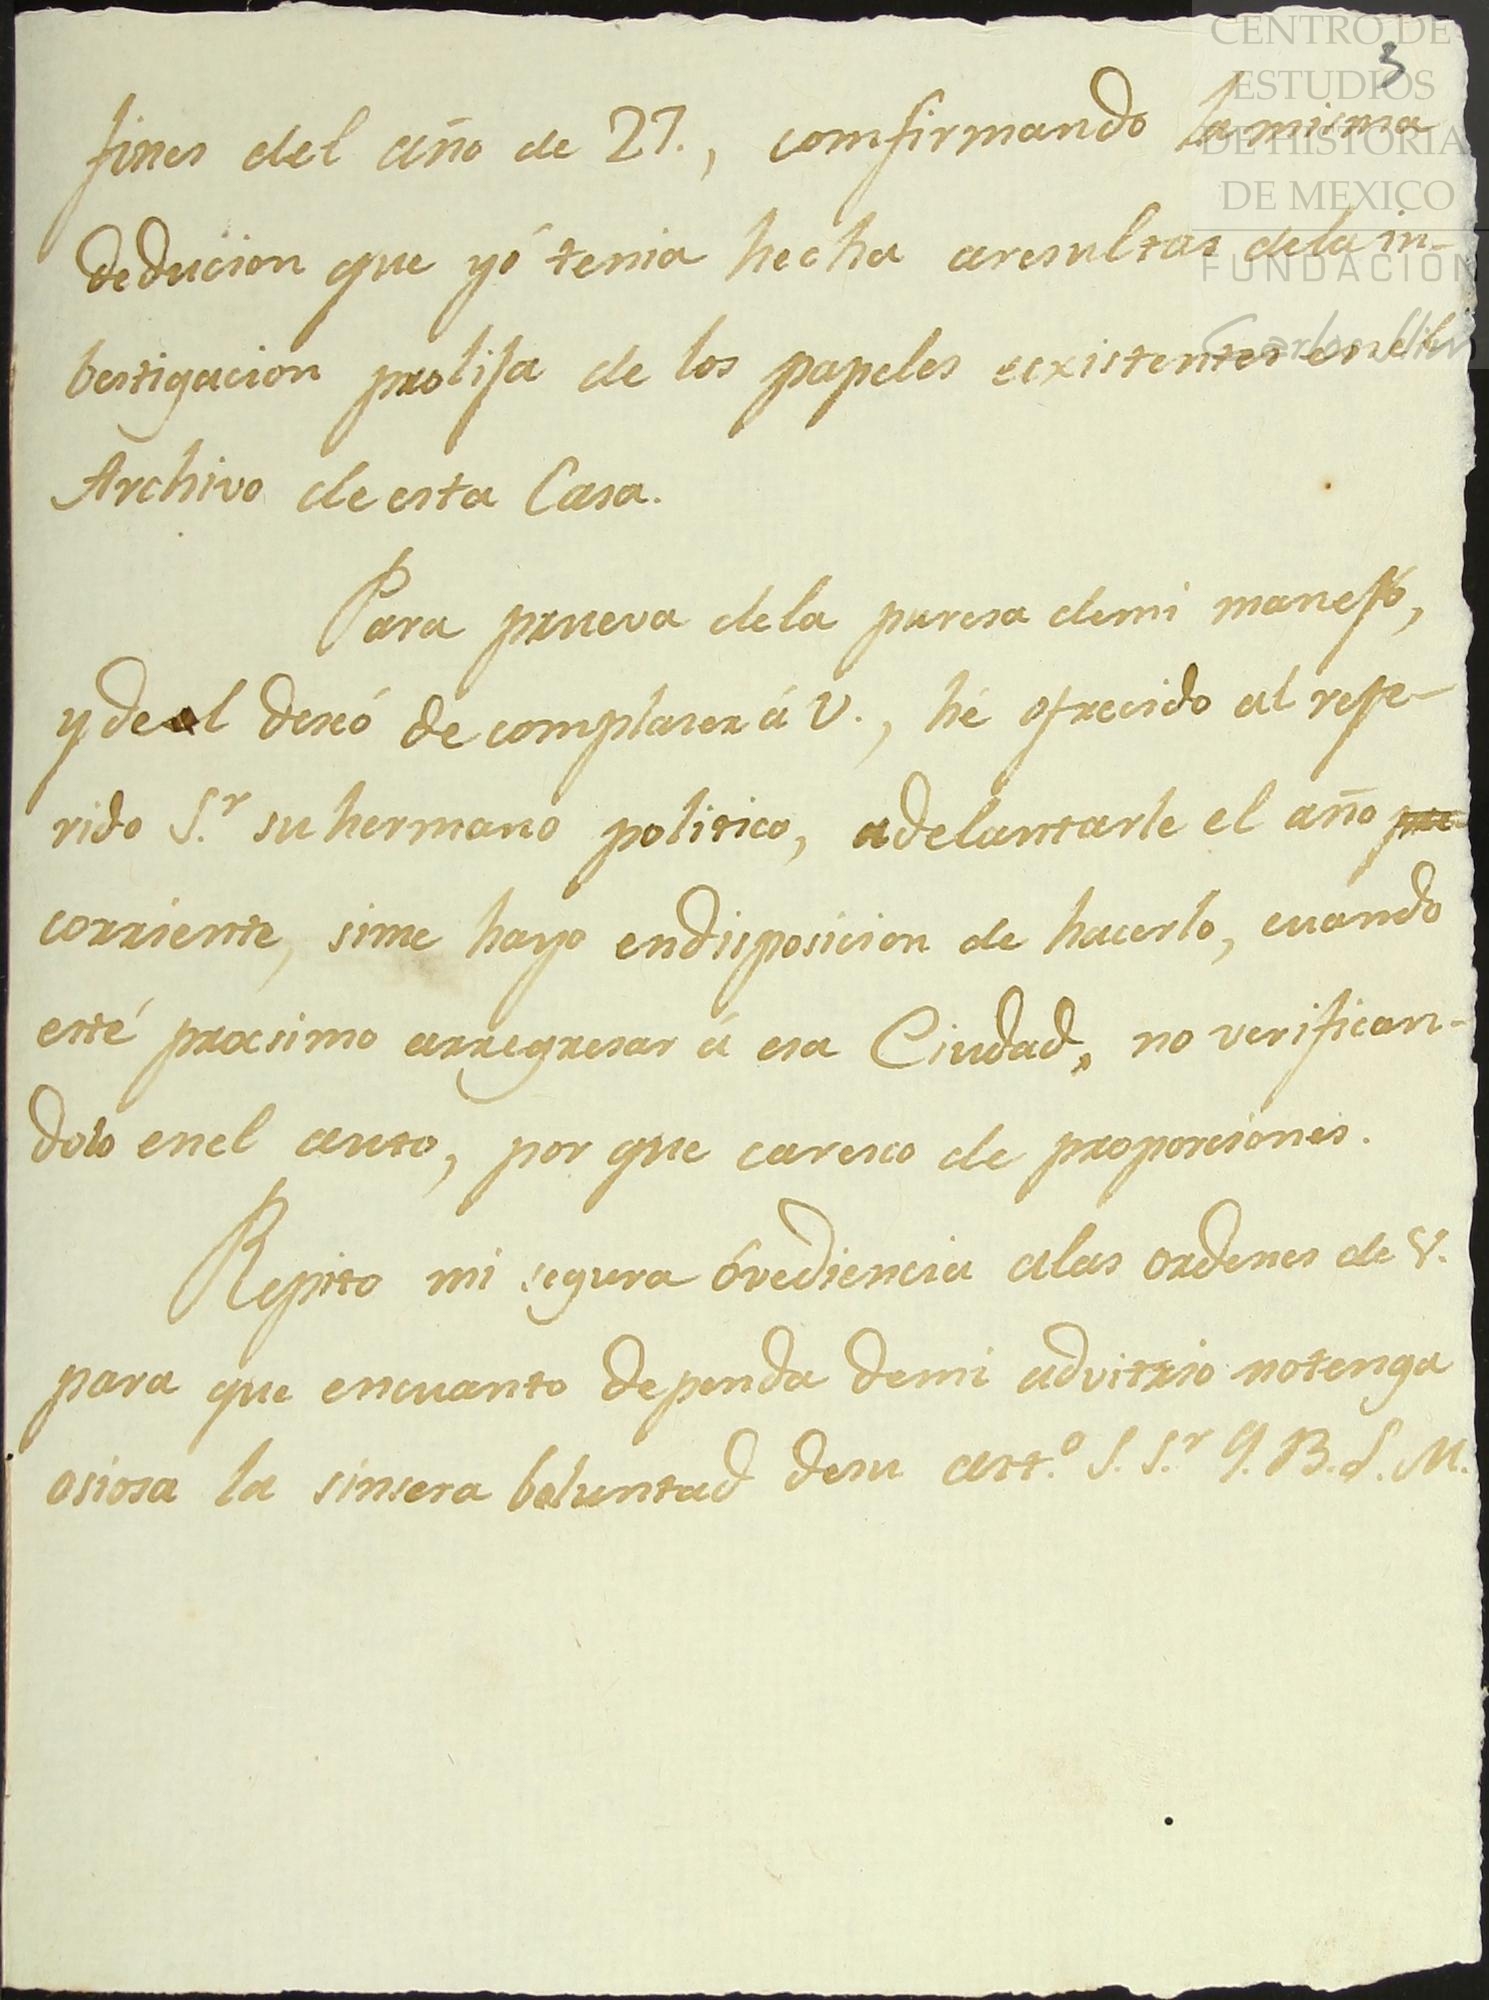 CENTRO DE
ESTUDIOS
DE HISTORIA
DE MEXICO
FUNDACIÓN
3
fines del año de 27., comfirmando la misma
deducion que yó tenia hecha aresultas dela in-
bestigacion prolija de los papeles eexistentes enel
Archivo de esta Casa.
Para prueva dela puresa demi manejo,
y de el deseó de complaser á V., hé ofrecido al refe-
rido S.r su hermano politico, adelantarle el año
corriente, sime hayo endisposicion de hacerlo, cuando
esté procsimo arregresar á esa Ciudad, no verifican-
dolo enel auto, por que caresco de proporciones.
Repito mi segura óvediencia alas ordenes de V.
para que encuanto dependa demi advitrio notenga
osiosa la sinsera boluntad desu att.o S. S.r Q. B. S. M.